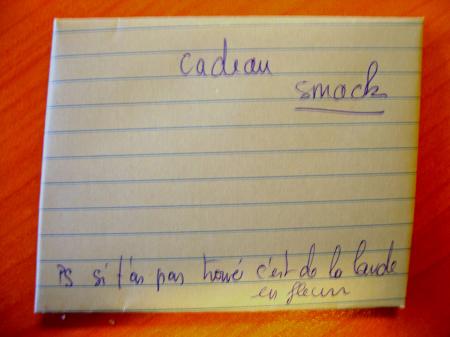 cadeau
smack
PS si t'as pas trouvé c'est de la lande
en fleurs